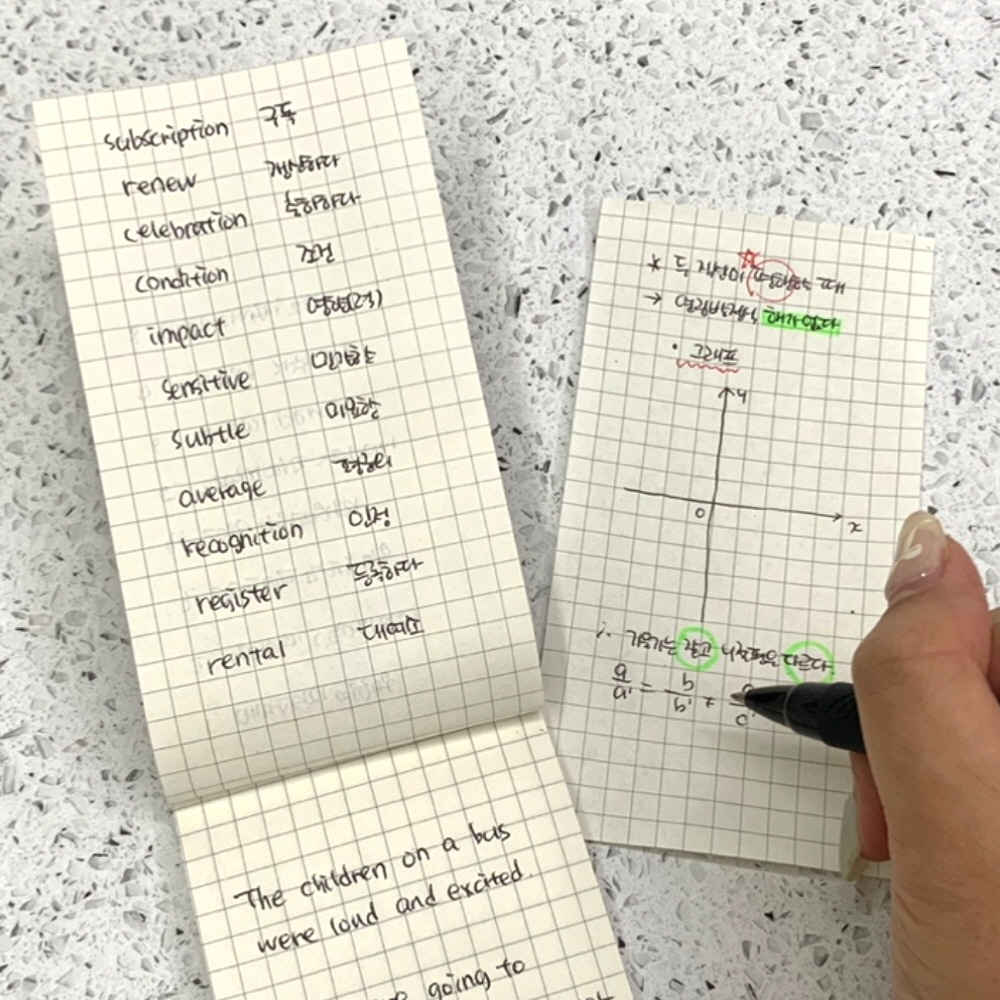 subscription 구독
renew 갱신하다
celebration 축하하다
condition 조건
impact 영향(력)
sensitive 민감한
subtle 미묘한
average 평균의
recognition 인정
register 등록하다
rental 대여료
The children on a bus
were loud and excited.
going to
* 두 직선이 평행할 때
→ 연립방정식 해가 없다
• 그래프
y
0
x
∴ 기울기는 같고 y절편은 다르다
a/a' = b/b' ≠
c'